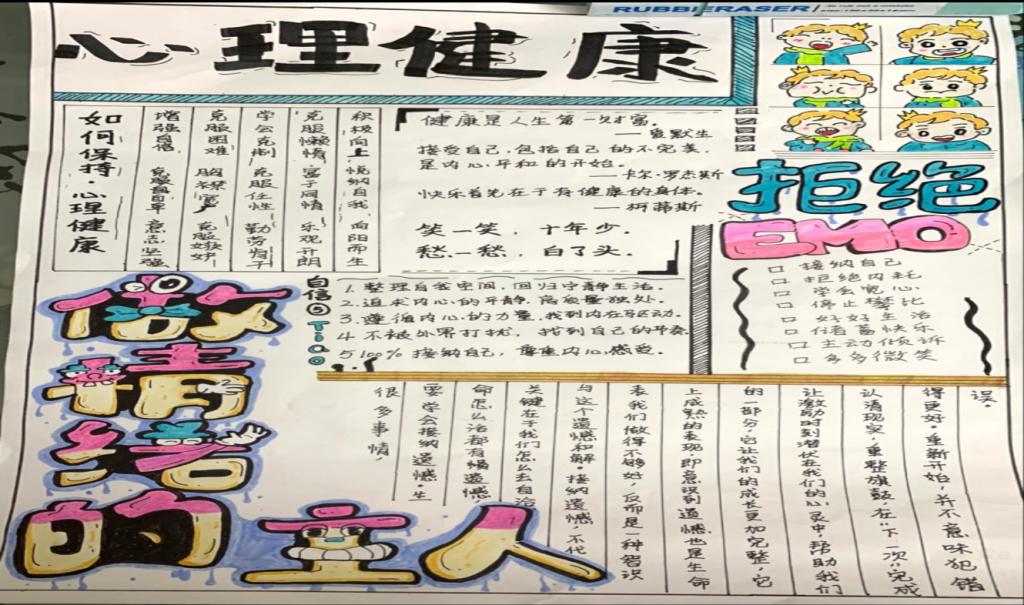 RUBBERASER
心理健康
如何保持·心理健康
增强自信 克服自卑 意志坚强
克服困难 胸襟宽广 克服嫉妒
学会克制 克服任性 勤劳肯干
克服懒惰 富于同情 乐观开朗
积极向上 悦纳自我 向阳而生
健康是人生第一次财富。
——爱默生
接受自己,包括自己的不完美,
是内心平和的开始。
——卡尔·罗杰斯
快乐首先在于有健康的身体。
——柯蒂斯
笑一笑,十年少。
愁一愁,白了头。
拒绝
EMO
接纳自己
拒绝内耗
学会宽心
停止攀比
好好生活
储蓄快乐
主动倾诉
多多微笑
自信的Tiao
1.整理自我空间,回归宁静生活。
2.追求内心的平静,高质量独处。
3.遵循内心的力量,找到内在驱动。
4.不被外界打扰,找到自己的节奏
5 100%接纳自己,尊重内心感受。
做情绪的主人
很多事情,
要学会接纳遗憾。生
命怎么活都有遗憾
关键在于我们怎么去自洽
与这个遗憾和解。接纳遗憾,不代
表我们做得不够好,反而是一种智识
上成熟的表现,即意识到遗憾也是生命
的一部分,它让我们的成长更加完整,它
让激励时刻潜伏在我们的心灵中,帮助我们
认清现实,重整旗鼓,在“下一次”完成
得更好。重新开始,并不意味犯错
误。